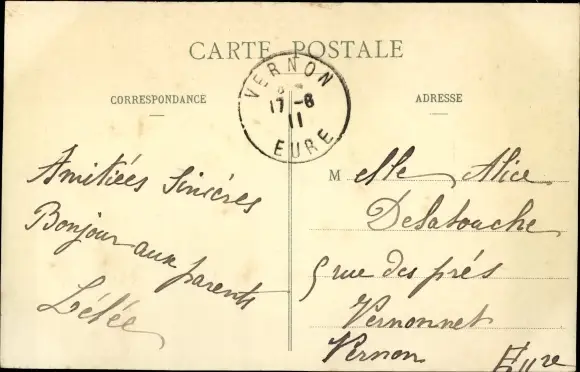 CARTE POSTALE
CORRESPONDANCE
ADRESSE
VERNON
17-6
11
EURE
Amitiées Sincéres
Bonjour aux parents
Lélée
Melle Alice
Delatouche
5 rue des prés
Vernonnet
Vernon
Eure